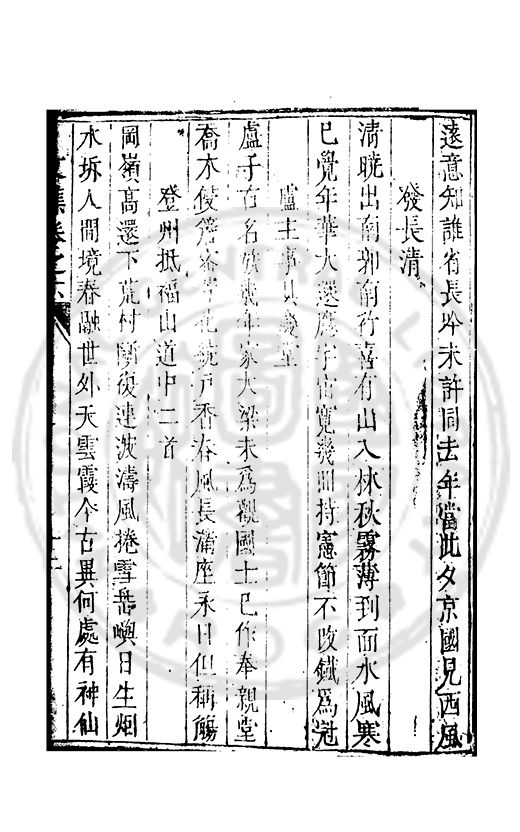 遠意知誰省長吟未許同去年當此夕京國見西風
發長清
清曉出南郭南行喜有山入林秋霧薄到面水風寒
已覺年華大還應宇宙寬幾回持憲節不改鐵為冠
盧主事具慶堂
盧子名幾年家大梁未為觀國士已作奉親堂
喬木侵簷戶香春風長滿座永日但稱觴
登州抵福山道中二首
岡嶺高還下荒村斷復連波濤風捲雪島嶼日生烟
水坼人間境春融世外天雲霞今古異何處有神仙
集卷之六